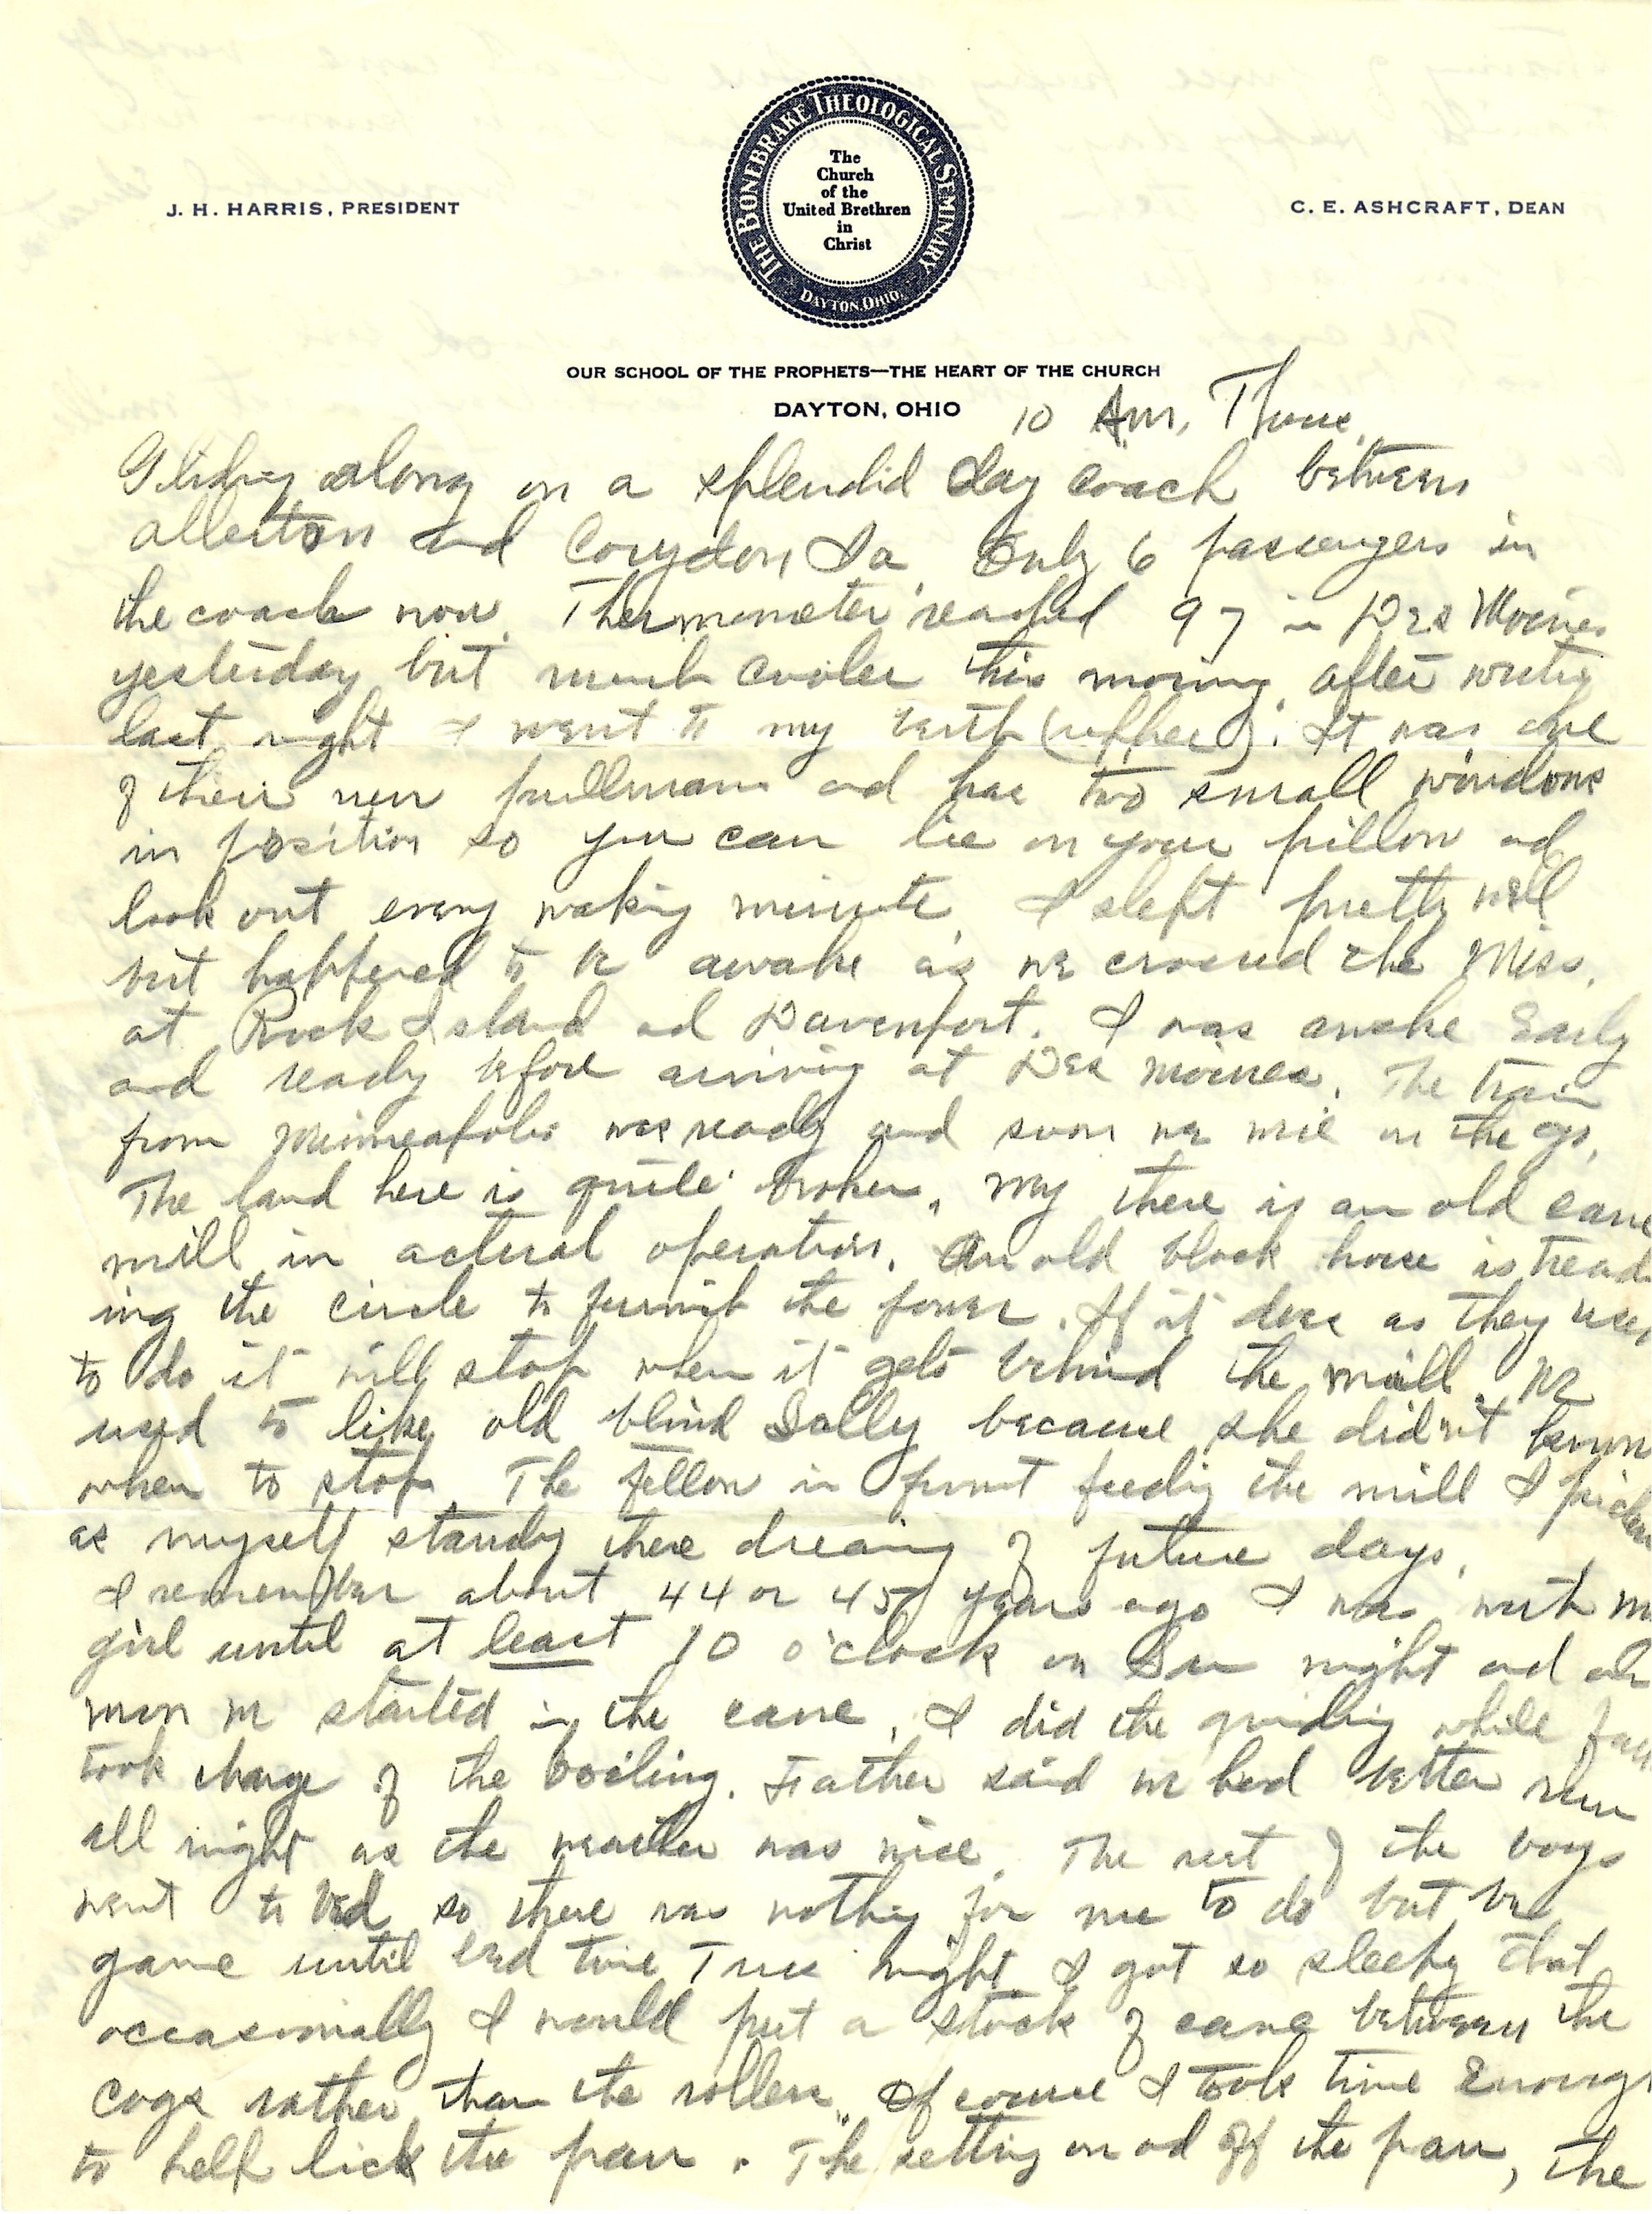 J. H. HARRIS, PRESIDENT
THE BONEBRAKE THEOLOGICAL SEMINARY
DAYTON, OHIO.
The
Church
of the
United Brethren
in
Christ
C. E. ASHCRAFT, DEAN
OUR SCHOOL OF THE PROPHETS—THE HEART OF THE CHURCH
DAYTON, OHIO
10 Am, Thurs.
Gliding along on a splendid day coach between
allerton and Corydon Ia. Only 6 passengers in
the coach now. Thermometer reached 97 in Des Moines
yesterday but much cooler this morning. after writing
last night I went to my berth (upper). It was one
of their new pullmans and has two small windows
in position so you can lie on your pillow and
look out every waking minute. I slept pretty well
but happened to be awake as we crossed the Miss.
at Rock Island and Davenport. I was awake early
and ready before arriving at Des Moines. The train
from Minneapolis was ready and soon we were on the go.
The land here is quite broken. My there is an old cane
mill in actual operation. An old black horse is tread
ing the circle to furnish the power. If it does as they used
to do it will stop when it gets behind the mill. We
used to like old blind Sally because she didn't know
when to stop. The fellow in front feeding the mill I
as myself standing there dreaming of future days.
I remember about 44 or 45 years ago I was with my
girl until at least 10 o'clock on Sun night and on
mon we started in the cane. I did the grinding while
took charge of the boiling. Father said we had better run
all night as the weather was nice. The rest of the boys
went to bed so there was nothing for me to do but be
game until bed time Tues night. I got so sleepy that
occasionally I would put a stock of cane between the
cogs rather than the rollers. Of course I took time enough
to help lick the pan. The setting on and off the pan, the